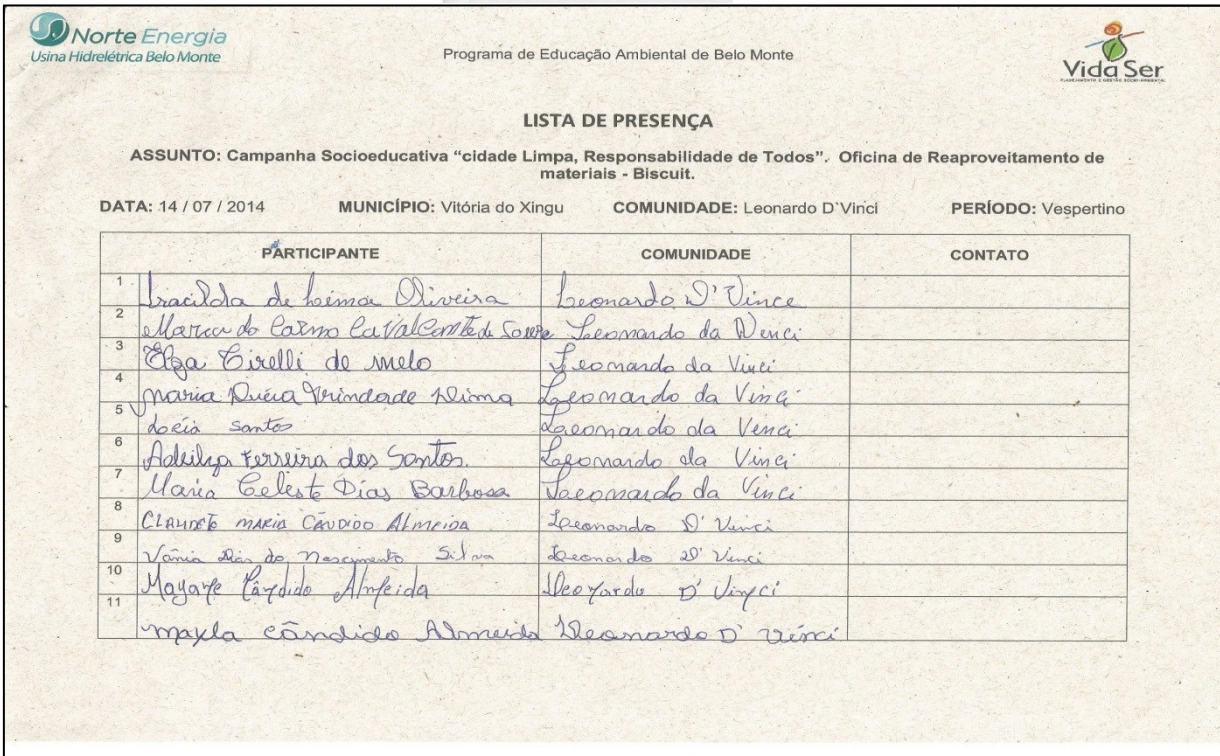 Norte Energia
Usina Hidrelétrica Belo Monte
Programa de Educação Ambiental de Belo Monte
Vida Ser
PLANEJAMENTO E GESTÃO SÓCIO-AMBIENTAL
LISTA DE PRESENÇA
ASSUNTO: Campanha Socioeducativa “cidade Limpa, Responsabilidade de Todos”. Oficina de Reaproveitamento de
materiais - Biscuit.
DATA: 14 / 07 / 2014 MUNICÍPIO: Vitória do Xingu COMUNIDADE: Leonardo D`Vinci PERÍODO: Vespertino
PARTICIPANTE COMUNIDADE CONTATO
1 Iracilda de Lima Oliveira Leonardo D' Vince
2 Maria do Carmo Cavalcante de Souza Leonardo da Venci
3 Elza Cirelli de melo Leonardo da Vinci
4 maria Lucia trindade Lima Leonardo da Vinci
5 Loéia Santos Leonardo da Venci
6 Adeilza Ferreira dos Santos. Leonardo da Vinci
7 Maria Celeste Dias Barbosa Leonardo da Vinci
8 CLAUDETE MARIA CÂNDIDO ALMEIDA Leonardo D' Vinci
9 Vânia Dias do Nascimento Silva Leonardo D' Venci
10 Mayane Cândido Almeida Leonardo D' Vinci
11 mayla cândido Almeida Leonardo D' Vinci